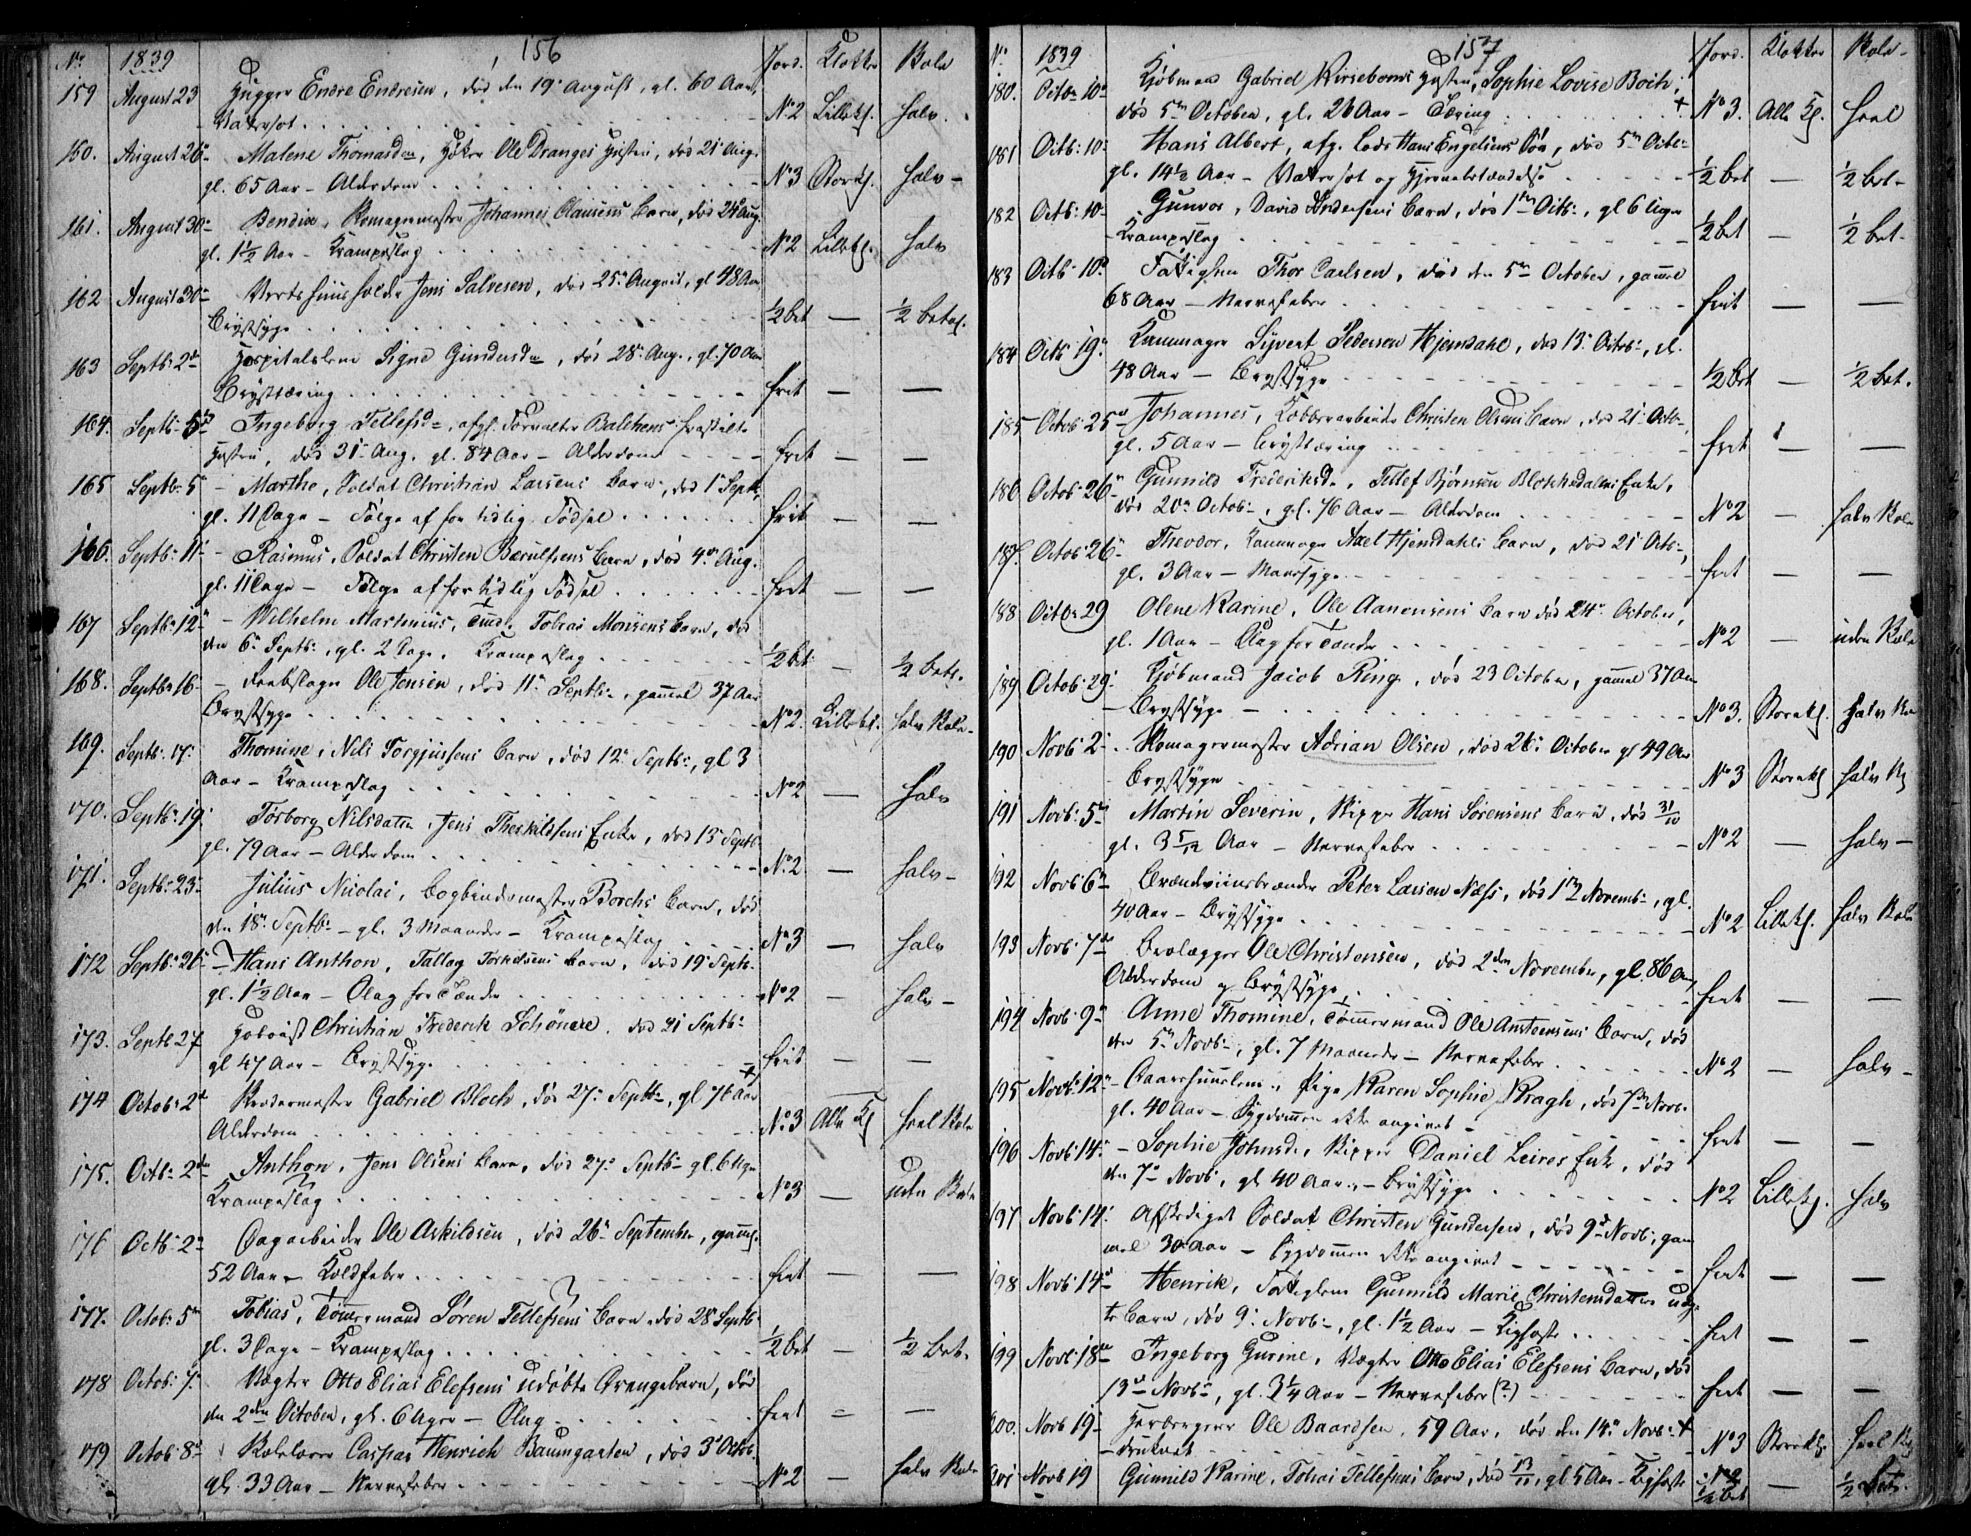 156
No 1839 Jord. Klokker Skole
159 August 23 Hugger Endre Endresen, død den 19 August, gl. 60 Aar,
Vatersot. No 2 Lillekl. halv.
160. August 26 Malene Thomasd., Høker Ole Dranges Hustru, død 21 Aug.
gl. 65 Aar – Alderdom No 3 Storekl. halv –
161. August 30 Bendix, Skomagermester Johannes Clausens Barn, død 24 Aug.
gl. 1½ Aar – Krampeslag No 2 Lillekl. halv
162 August 30 Vertshuusholder Jens Salvesen, død 25 August, gl 48 Aar
Brystsyge ½ bet — ½ betal.
163 Septb: 2 Hospitalslem Signe Gundersd., død 28 Aug., gl. 70 Aar
Brysttæring frit — —
164. Septb. 5 Ingeborg Tellefsd., afgl. Forvalter Balchens fraskilte
Hustru, død 31 Aug. gl. 84 Aar – Alderdom frit — —
165 Septb: 5 – Marthe, Soldat Christian Larsens Barn, død 1 Septb.
gl. 11 Dage – Følge af for tidlig Fødsel frit — —
166. Septb: 11 – Rasmus, Soldat Christen Berulfsens Barn, død 4 Aug.
gl. 11 Dage – Følge af for tidlig Fødsel frit — —
167 Septb: 12 – Wilhelm Martinius, Tmd. Tobias Monsens Barn, død
den 6 Septb:, gl. 2 Dage. Krampeslag ½ bet — ½ betl.
168. Septb: 16 – Ole Jensen, død 11 Septb:, gammel 37 Aar
Brystsyge No 2. Lillekl. halv Skole
169. Septb: 17 Thomine, Nils Torgjussens Barn, død 12 Septb:, gl 3
Aar – Krampeslag No 2 — halv
170. Septb: 19 Torborg Nilsdatter, Jens Therkildsens Enke, død 13 Septb
gl. 79 Aar – Alderdom No. 2 — halv –
171. Septb: 23 Julius Nicolai, Bogbindermester Borchs Barn, død
den 18 Septb: – gl. 3 Maaneder – Krampeslag No 3 — halv
172 Septb: 26 – Hans Anthon, Tallag Torkelsens Barn, død 19 Septb.
gl. 1½ Aar – Slag for Tænder No 2 — halv –
173. Septb 27 Hoboist Christian Frederik Schönere, død 21 Septb:
gl 47 Aar – Brystsyge frit — —
174 Octob: 2 Reedermester Gabriel Bloch, død 27 Septb:, gl 76 Aar
Alderdom No. 3 Alle Kl heel Skole
175. Octb: 2 Anthon, Jens Olsens Barn, død 27 Septb: gl. 6 Uger
Krampeslag No 3 — uden Skole
176 Octb: 2 Dagarbeider Ole Askildsen, død 26 September, gamel
52 Aar – Koldfeber frit — —
177. Octob: 5 Tobias, Tømmermand Søren Tellefsens Barn død 28 Septb
gl. 3 Dage – Krampeslag ½ bet — ½ bet.
178 Octob: 7 Vægter Otto Elias Elefsens udøbte Drængebarn, død
den 2den October, gl. 6 Uger – Slag frit — —
179 Octob: 8 Skolelærer Caspar Henrich Baumgarten, død 3 Octob.
gl. 33 Aar – Nervefeber No 2 — halv Skole
157
No 1839 Jord. Klokker Skole
180. Octb: 10 Kjøbmand Gabriel Kirsebomś Hustru, Sophie Lovise Boch,
død 5 October, gl. 26 Aar – Tæring + No 3. Alle Kl. heel
181 Octb: 10 Hans Albert, afg. Lods Hans Engelsens Søn, død 5 Octb:
gl. 14½ Aar – Vatersot og Hjernebetændelse ½ bet — ½ bet.
182 Octb: 10 Gunvor, David Andersens Barn, død 1 Octb:, gl 6 Uger
– Krampeslag ½ bet — ½ bet.
183 Octb: 10 Fattiglem Thor Carlsen, død den 5 October, gammel
68 Aar – Nervefeber frit — —
184 Octb 19 Kammager Syvert Pedersen Hjemdahl, død 13 Octob:, gl.
48 Aar – Brystsyge ½ bet — ½ bet.
185 Octob: 25 Johannes, Kobberarbeider Christen Olsens Barn, død 21 Octb:
gl. 5 Aar – Brysttæring frit — —
186 Octob: 26 Gunnild Frederiksd., Tellef Bjørnsen Blokkedalens Enke,
død 20 Octob:, gl. 76 Aar – Alderdom No 2 — halv Skole
187. Octob: 26 Theodor, Kammager Axel Hjemdahls Barn, død 21 Octb:,
gl. 3 Aar – Mavesyge frit — —
188 Octb: 29 Olene Karine, Ole Aanonsens Barn død 24 October,
gl. 1 Aar – Slag for Tænder No 2 — uden Skole
189 Octob: 29 Kjøbmand Jacob Ring, død 23 October, gammel 37 Aar
– Brystsyge – No 3. Storekl. halv Sk
190 Novb: 2 Skomagermester Adrian Olsen, død 26 October gl 49 Aar
Brystsyge No 3 Storekl halv Sk
191 Novb: 5 Martin Severin, Skipper Hans Sørensens Barn, død 31/10
gl. 3 5/12 Aar – Nervefeber No 2 — halv –
192 Novb: 6 Brændeviinsbrænder Peter Larsen Næss, død 1 Novemb:, gl.
40 Aar – Brystsyge No 2 Lillekl. halv Skole
193 Novb: 7 Brolægger Ole Christensen, død 2den November, gl. 86 Aar,
Alderdom og Brystsyge frit — —
194 Novb: 9 Anne Thomine, Tømmermand Ole Anstensens Barn, død
den 5 Novb:, gl. 7 Maaneder – Nervefeber No 2 — halv –
195 Novb: 12 – Daarehuuslem, Pige Karen Sophie Kragh, død 7 Novb.
gl. 40 Aar – Sygdommen ikke angivet – frit — —
196 Novb: 14 – Sophie Johnsd., Skipper Daniel Leires Enke, død
den 7 Novb:, gl 40 Aar – Brystsyge No 2 Lillekl. halv
197 Novb: 14 Afskediget Soldat Christen Gundersen, død 9 Novb:, gam
mel 30 Aar – Sygdommen ikke angivet – frit — —
198 Novb: 14 Henrik, Fattiglem Gunnild Marie Christensdatters uægte
Barn, død 9 Novb:, gl. 1½ Aar – Kighoste frit — —
199 Novb: 18 Ingeborg Gurine, Vægter Otto Elias Elefsens Barn, død
13 Novb:, gl. 3¼ Aar – Nervefeber (?) frit — —
200. Novb 19 Herbergerer Ole Baardsen, 59 Aar, død den 14 Novb: +
– druknet No 3 Storekl. heel Sk
201 Novb 19 Gunnild Karine, Tobias Tellefsens Barn, død 13/11, gl 5 Aar – Kighoste No 2 ½ bet — ½ betl.